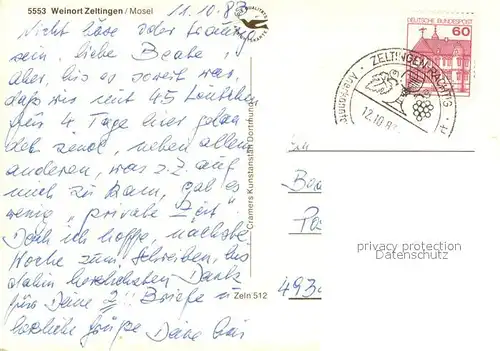 5553 Weinort Zeltingen / Mosel
11.10.83
Nicht böse oder traurig
sein, liebe Beate,
aber, bis es soweit war,
daß wir mit 45 Deutschen
für 4 Tage hier gelan-
det sind, neben allem
anderen, was z.Z. auf
mich zu kam, gab es
wenig "private Zeit".
Doch ich hoffe, nächste
Woche zum Schreiben, bis
dahin herzlichsten Dank
für Deine 2!! Briefe u.
herzliche Grüße Deine
Cramers Kunstanstalt Dortmund
Zeln 512
DEUTSCHE BUNDESPOST
60
ZELTINGEN-RACHTIG
12.10.83
493
privacy protection
Datenschutz